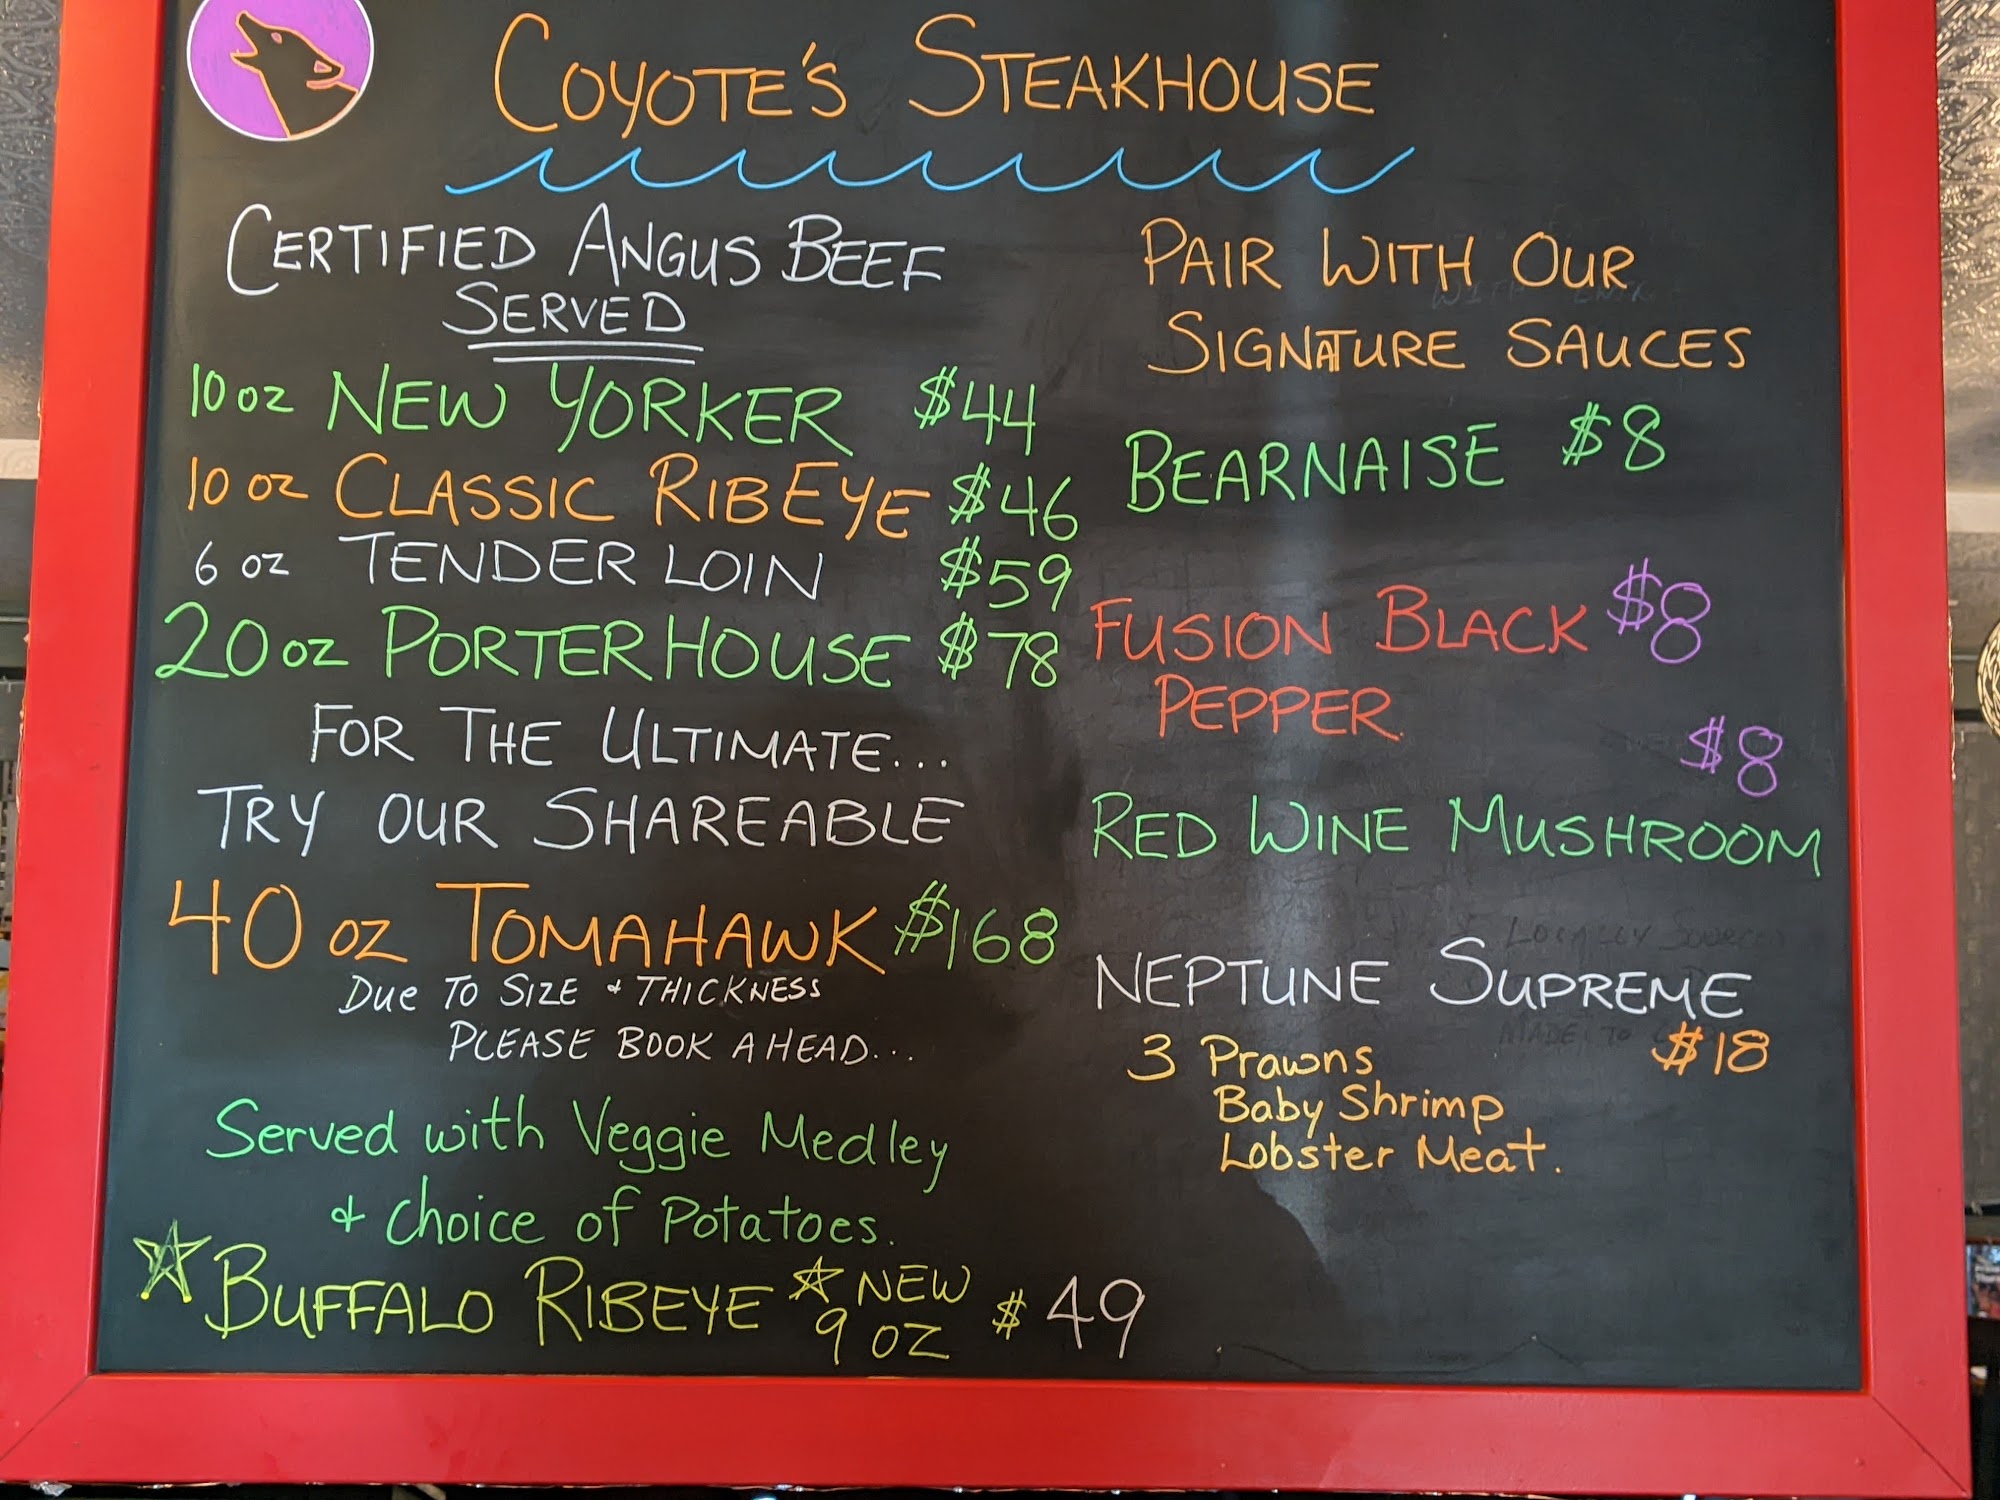 COYOTE'S STEAKHOUSE
CERTIFIED ANGUS BEEF
SERVED
10 oz NEW YORKER $44
10 oz CLASSIC RIBEYE $46
6 oz TENDERLOIN $59
20 oz PORTERHOUSE $78
FOR THE ULTIMATE...
TRY OUR SHAREABLE
40 oz TOMAHAWK $168
DUE TO SIZE & THICKNESS
PLEASE BOOK AHEAD...
Served with Veggie Medley
& choice of Potatoes.
BUFFALO RIBEYE NEW
9 OZ $49
PAIR WITH OUR
SIGNATURE SAUCES
BEARNAISE $8
FUSION BLACK $8
PEPPER
$8
RED WINE MUSHROOM
NEPTUNE SUPREME
3 Prawns $18
Baby Shrimp
Lobster Meat.